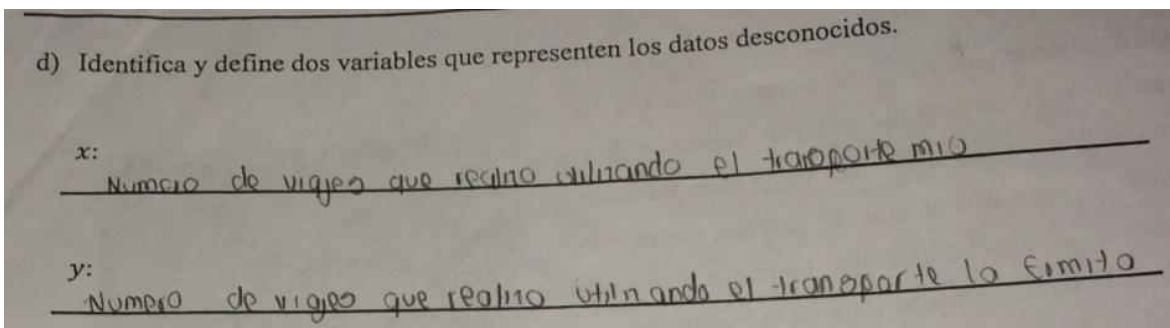 d) Identifica y define dos variables que representen los datos desconocidos.
x:
Numero de viajes que realizo utilizando el transporte mio
y:
Numero de viajes que realizo utilizando el transporte la